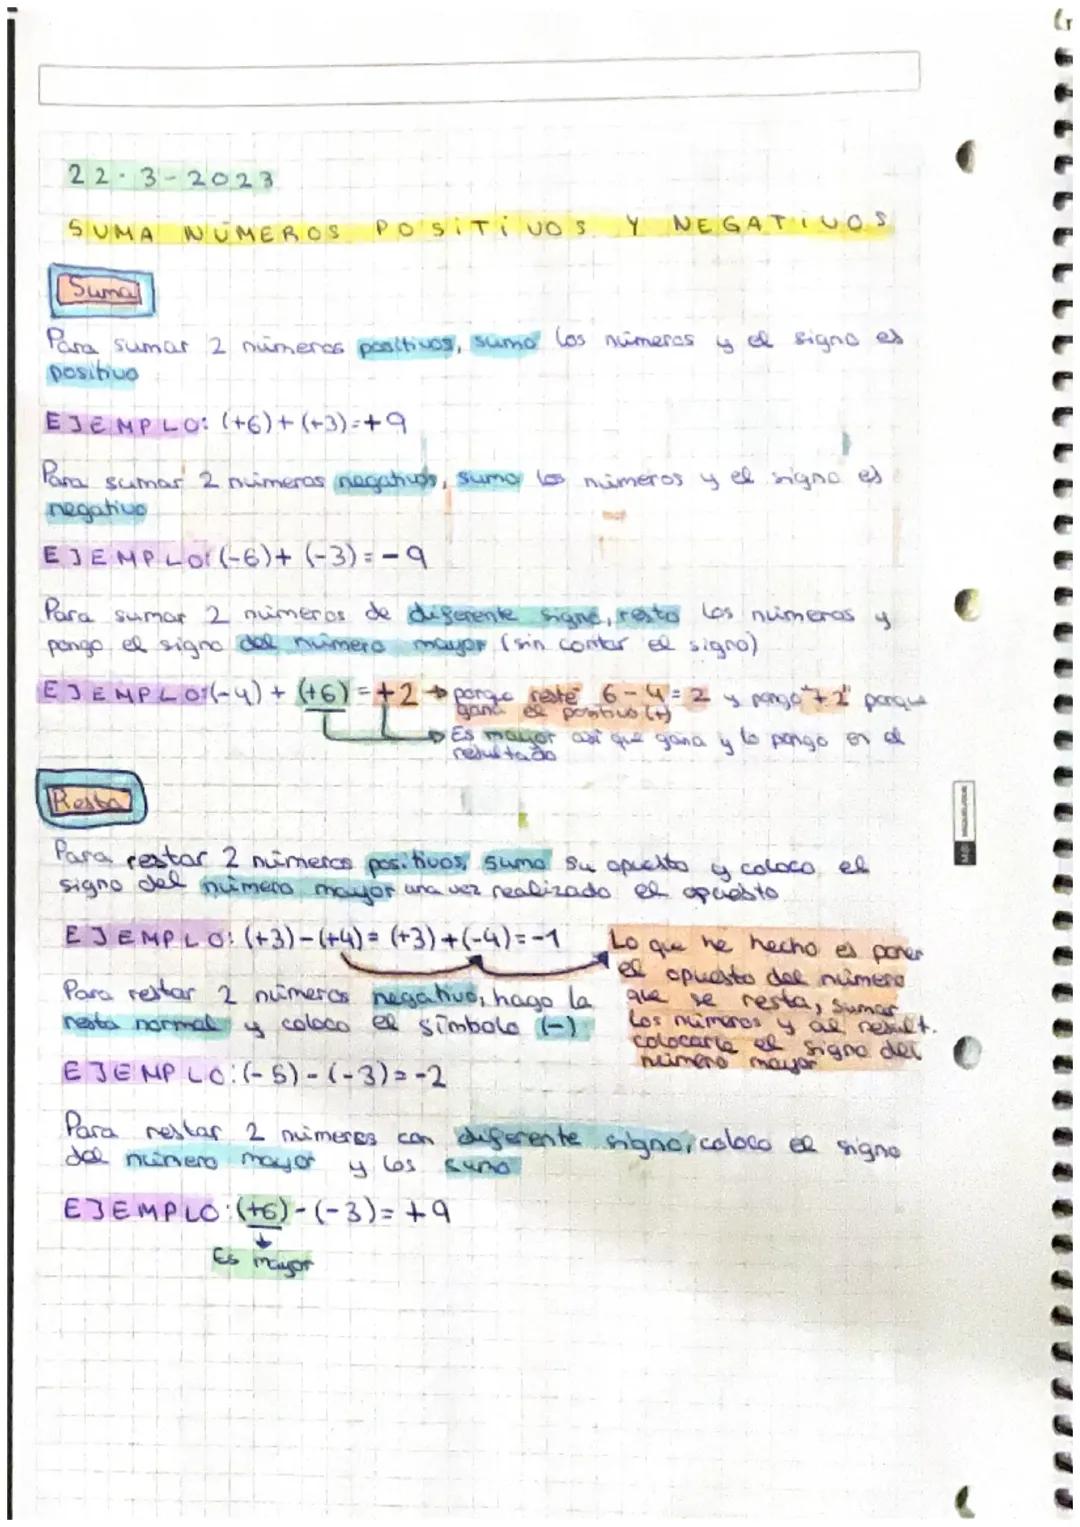 22-3-2023
SUMA NÚMEROS POSITIVOS Y NEGATIVOS
Suma
Para sumar 2 números positivos, sumo los números y el signo es
positivo
EJEMPLO: (+6)+(+3)=+9
Para sumar 2 números negativos, sumo los números y el signo es
negativo
EJEMPLO: (-6)+(-3)=-9
Para sumar 2 números de diferente signo, resto los números y
pongo el signo del número mayor (sin contar el signo)
EJEMPLO: (-4)+(+6)=+2 → porqe resté 6-4=2 y pongo "+2" porque
gana el positivo (+)
→ Es mayor así que gana y lo pongo en el
resultado
Resta
Para restar 2 números positivos, sumo su opuesto y coloco el
signo del número mayor una vez realizado el opuesto
EJEMPLO: (+3)-(+4)=(+3)+(-4)=-1
Lo que he hecho es poner
el opuesto del número
que se resta, sumar
los números y al result.
colocarle el signo del
número mayor
Para restar 2 números negativo, hago la
resta normal y coloco el símbolo (-)
EJEMPLO: (-5)-(-3)=-2
Para restar 2 números con diferente signo, coloco el signo
del número mayor y los sumo
EJEMPLO: (+6)-(-3)=+9
Es mayor